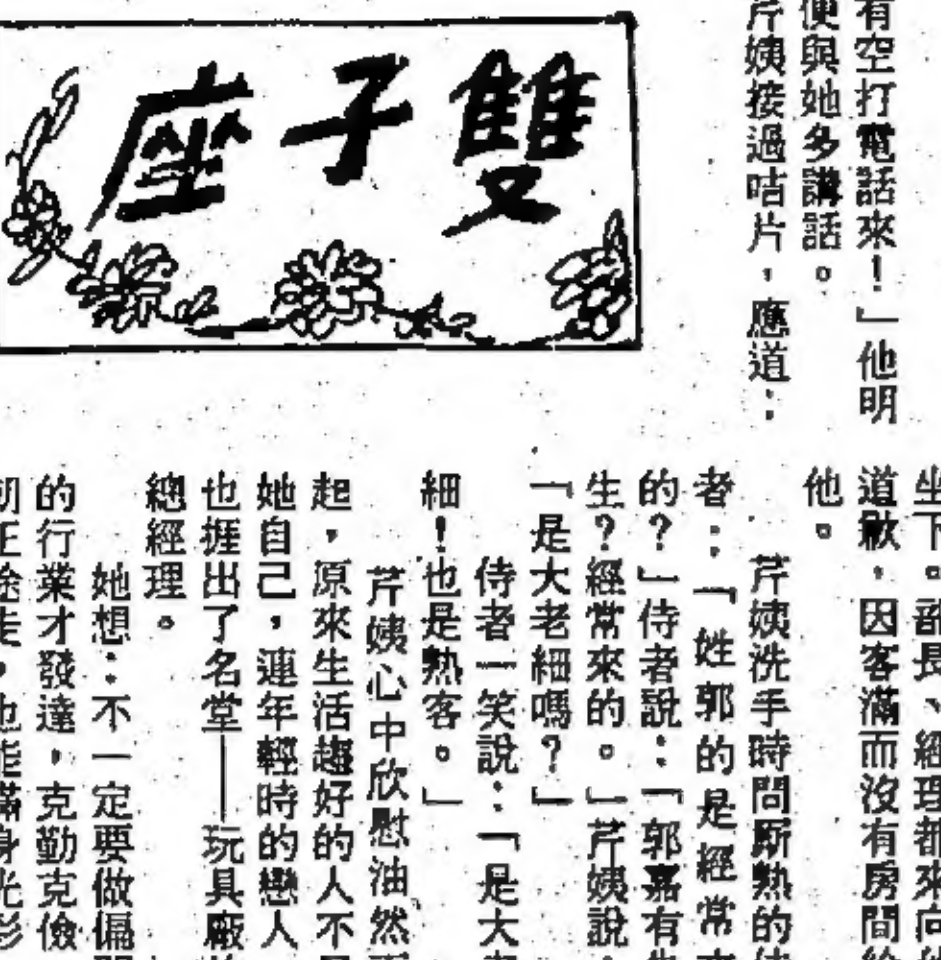 有空打電話來！」他明
便與她多講話。
芹姨接過咭片，應道：
雙子座
坐下。部長、經理都來向
道歉，因客滿而沒有房間
他。
芹姨洗手時問廝熟的
者：「姓郭的是經常
的？」侍者說：「郭嘉有
生？經常來的。」芹姨說
「是大老細嗎？」
侍者一笑說：「是大
細！也是熟客。」
芹姨心中欣慰油然
起，原來生活趨好的人不
她自己，連年輕時的戀人
也捱出了名堂——玩具廠
總經理。
她想：不一定要做偏
的行業才發達，克勤克儉
正途走，也能滿身光彩